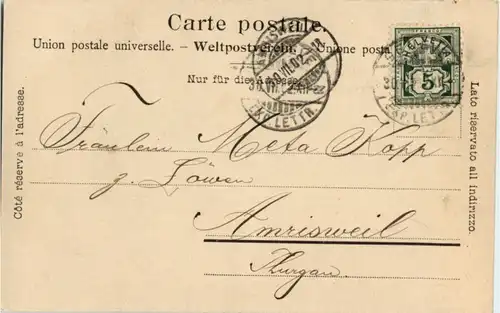 Carte postale.
Union postale universelle. – Weltpostverein. – Unione posta
Nur für die Adresse.
Côté réservé à l'adresse.
Lato riservato all indirizzo.
HELVETIA
5
EXP. LETTR.
02
EXP. LETTR.
Fräulein Meta Kopp
z. Löwen
Amrisweil
Thurgau.